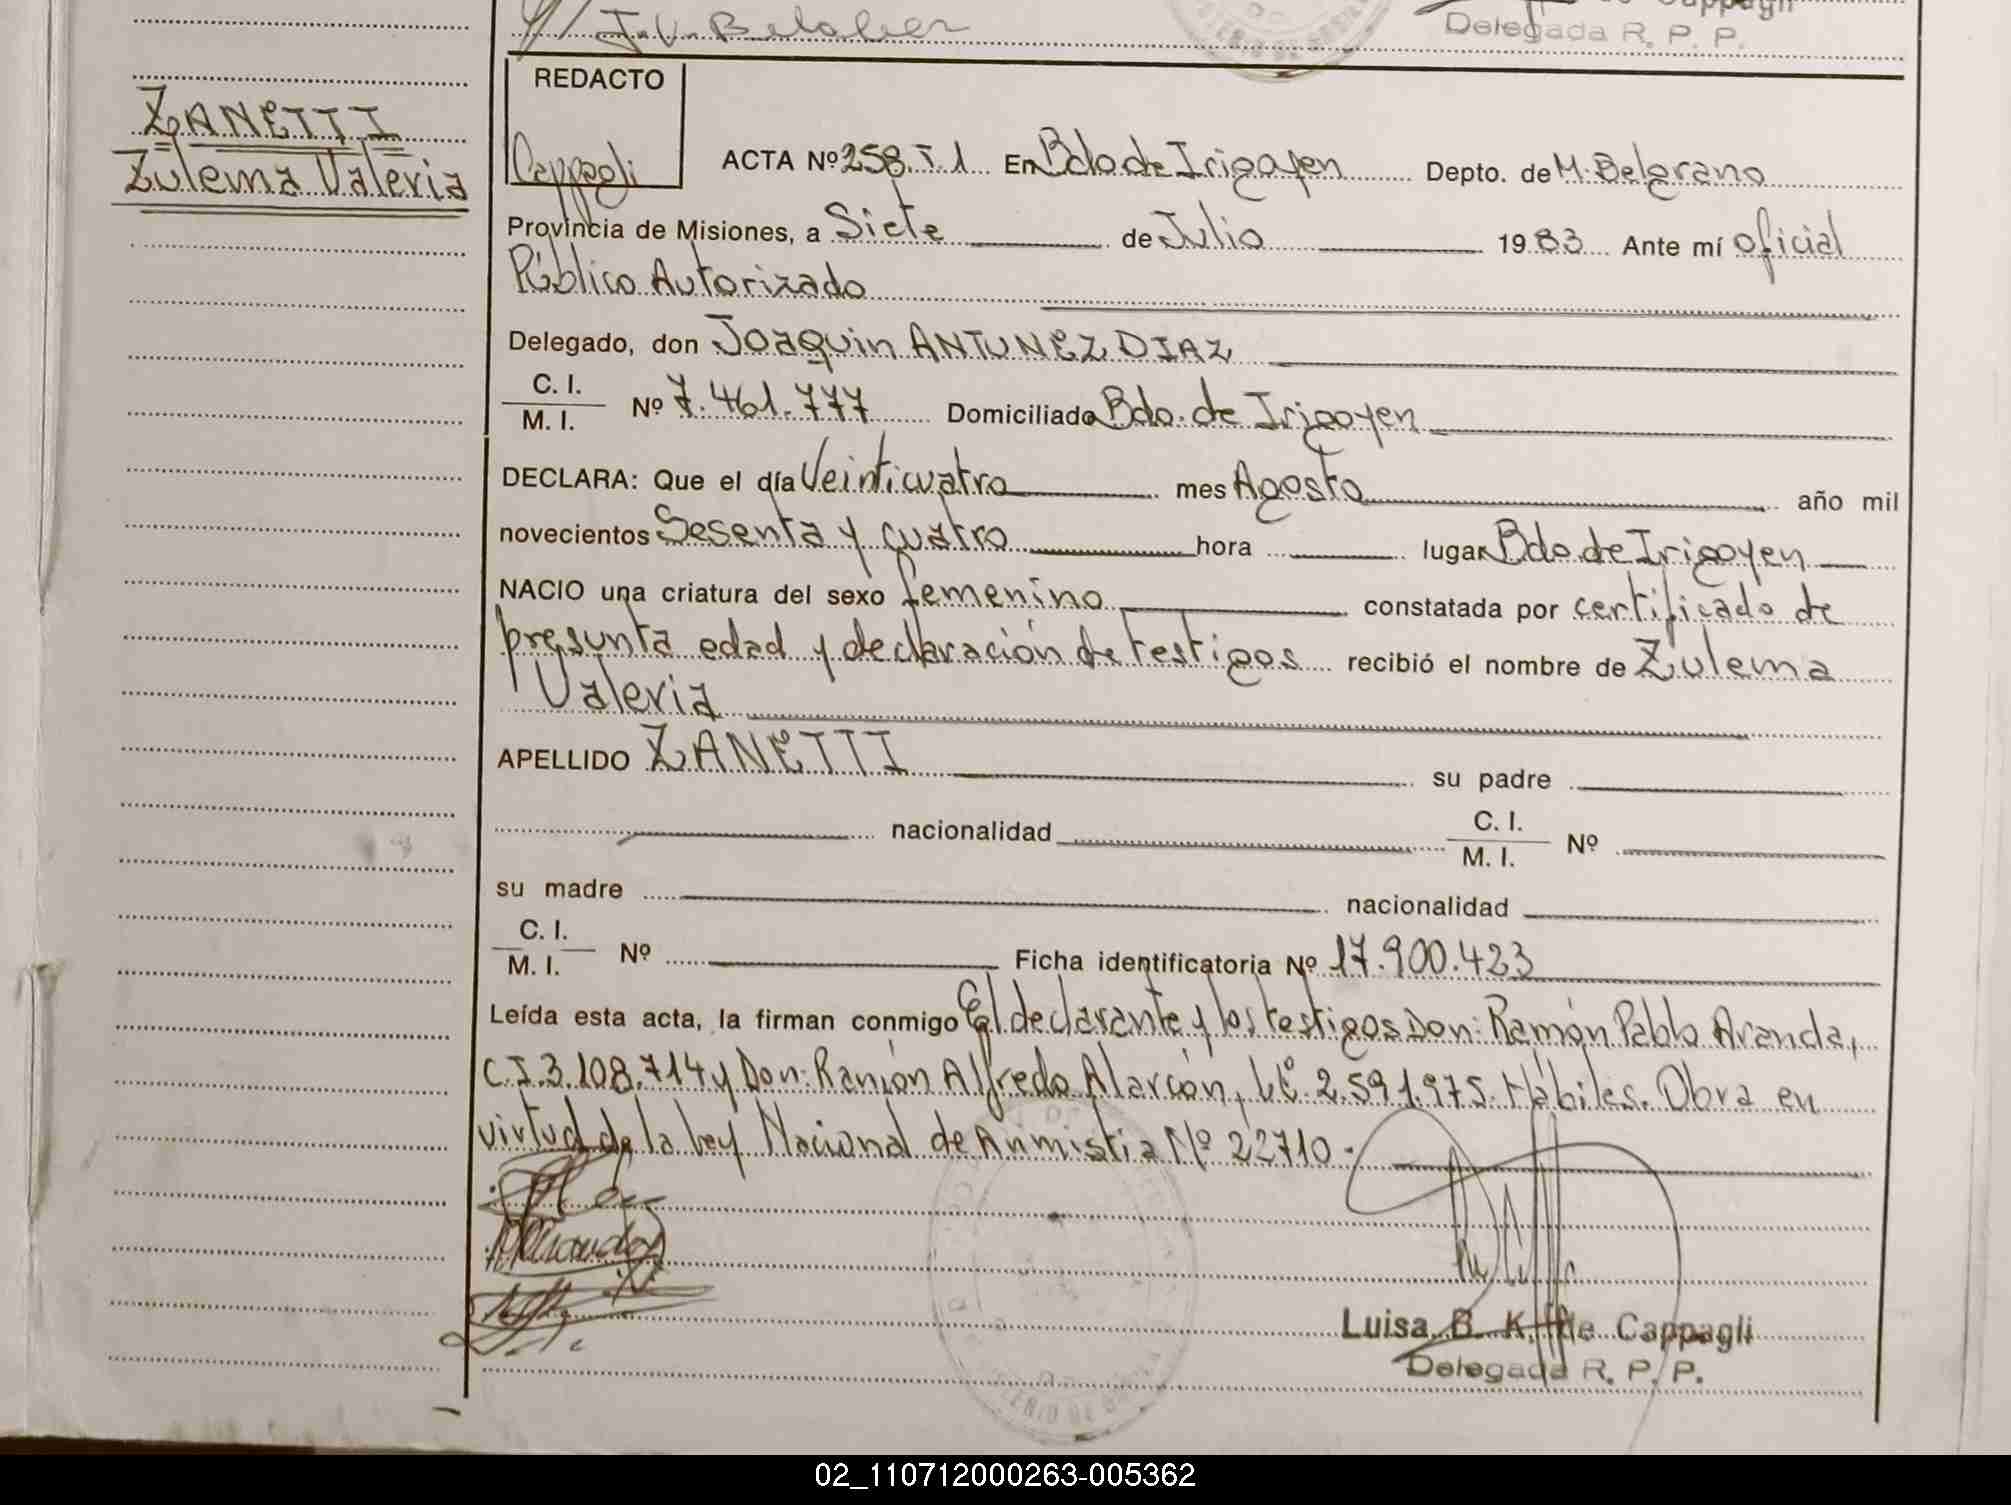 J.V. Beloher
Cappagli
Delegada R. P. P.
ZANETTI
Zulema Valeria
REDACTO
Cappagli
ACTA Nº 258. T.1 En Bdo de Irigoyen Depto. de M. Belgrano
Provincia de Misiones, a Siete de Julio 1983 Ante mí oficial
Público Autorizado
Delegado, don Joaquin ANTUNEZ DIAZ
C. I.
M. I. Nº 7.461.777 Domiciliado Bdo. de Irigoyen
DECLARA: Que el día Veinticuatro mes Agosto año mil
novecientos Sesenta y cuatro hora lugar Bdo. de Irigoyen
NACIO una criatura del sexo femenino constatada por certificado de
presunta edad y declaración de testigos recibió el nombre de Zulema
Valeria
APELLIDO ZANETTI su padre
nacionalidad C. I.
M. I. Nº
su madre nacionalidad
C. I.
M. I. Nº Ficha identificatoria Nº 17.900.423
Leída esta acta, la firman conmigo El declarante y los testigos Don: Ramón Pablo Aranda,
C.I. 3.108.714 y Don: Ramón Alfredo Alarcón, L.E. 2.591.975. Hábiles. Obra en
virtud de la ley Nacional de Anmistia Nº 22710.-
Luisa B. K. de Cappagli
Delegada R. P. P.
02_110712000263-005362